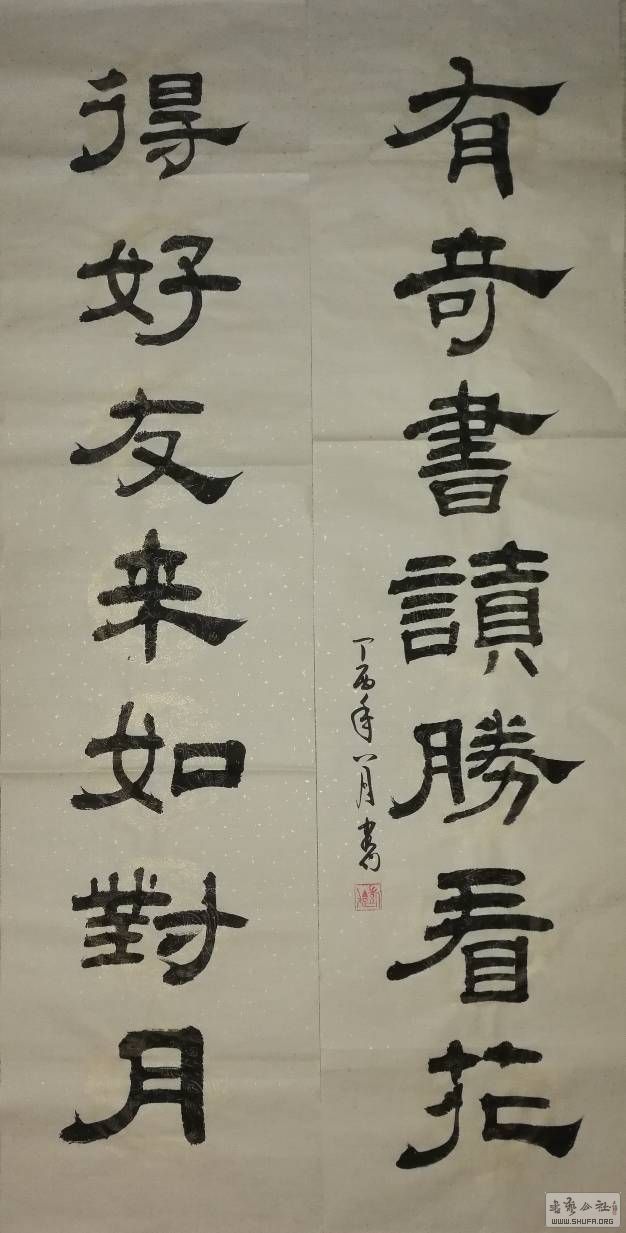 有奇書讀勝看花
得好友来如對月
丁酉年八月書
书艺公社
WWW.SHUFA.ORG